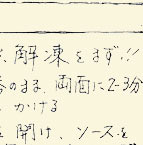 解凍をまず!!
のまま、両面に2-3分
かける
開け、ソースを